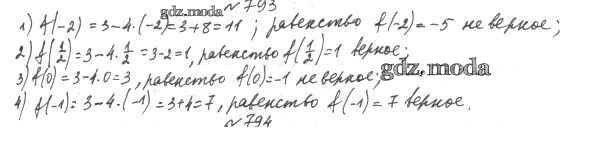 № 793
gdz.moda
1) f(-2) = 3-4·(-2)=3+8=11 ; равенство f(-2)=-5 не верное;
2) f(1/2)=3-4·1/2=3-2=1, равенство f(1/2)=1 верное;
3) f(0)=3-4·0=3, равенство f(0)=-1 не верное;
gdz.moda
4) f(-1)=3-4·(-1)=3+4=7, равенство f(-1)=7 верное.
№ 794